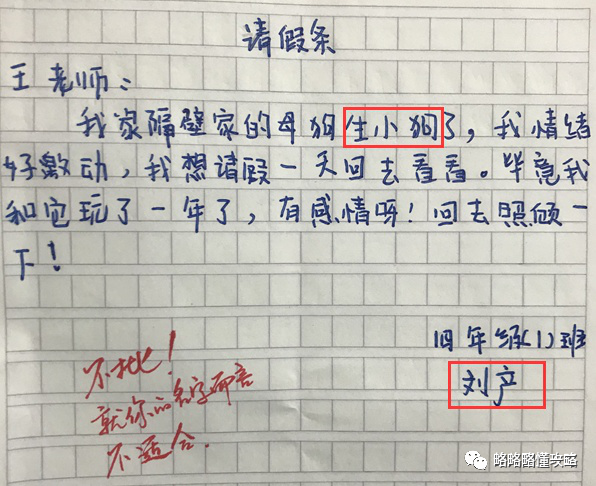 请假条
王老师：
我家隔壁家的母狗生小狗了，我情绪
好激动，我想请假一天回去看看。毕竟我
和它玩了一年了，有感情呀！回去照顾一
下！
四年级(1)班
刘产
不批！
就你的名字而言
不适合.
略略略懂攻略